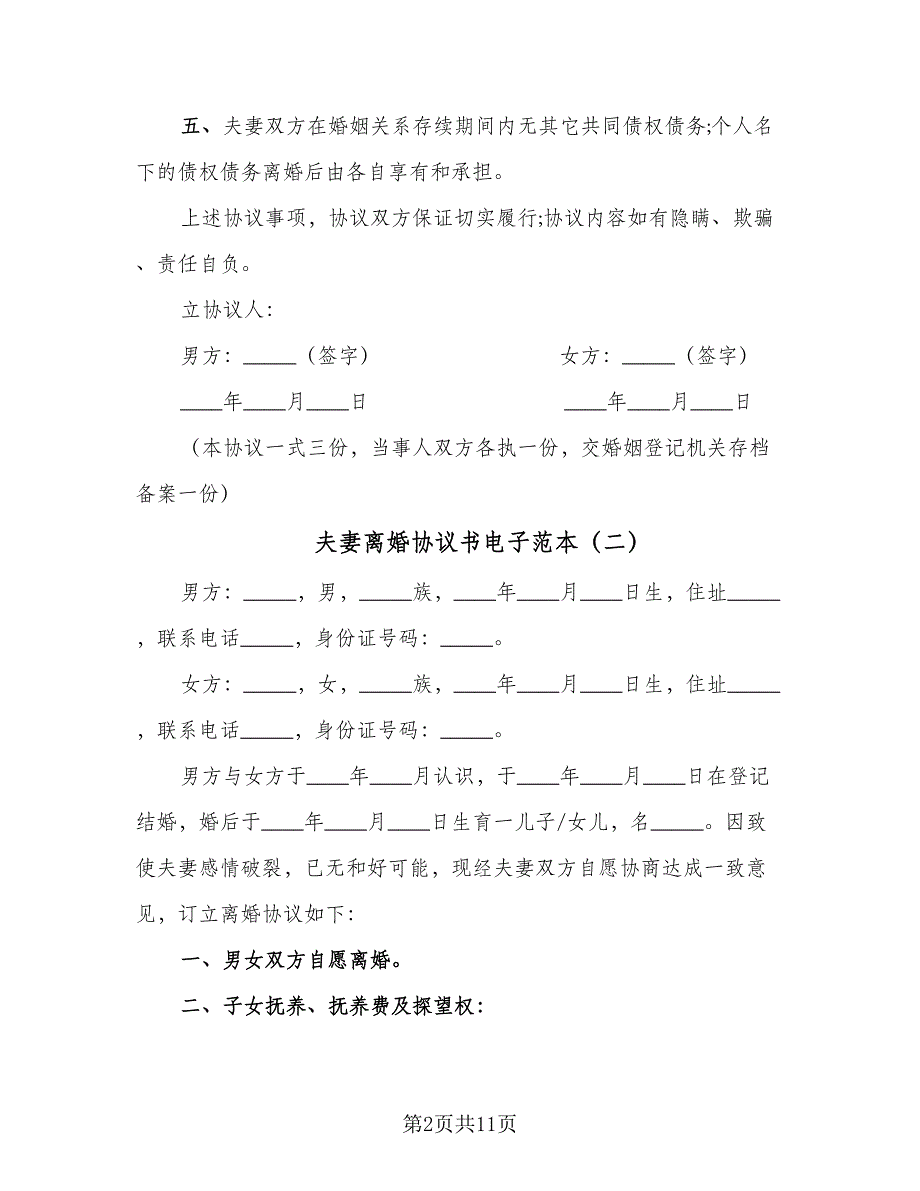 五、夫妻双方在婚姻关系存续期间内无其它共同债权债务;个人名
下的债权债务离婚后由各自享有和承担。
上述协议事项，协议双方保证切实履行;协议内容如有隐瞒、欺骗
、责任自负。
立协议人：
男方：_____（签字） 女方：_____（签字）
____年____月____日 ____年____月____日
（本协议一式三份，当事人双方各执一份，交婚姻登记机关存档
备案一份）
夫妻离婚协议书电子范本（二）
男方：_____，男，_____族，____年____月____日生，住址_____
，联系电话_____，身份证号码：_____。
女方：_____，女，_____族，____年____月____日生，住址_____
，联系电话_____，身份证号码：_____。
男方与女方于____年____月认识，于____年____月____日在登记
结婚，婚后于____年____月____日生育一儿子/女儿，名_____。因致
使夫妻感情破裂，已无和好可能，现经夫妻双方自愿协商达成一致意
见，订立离婚协议如下：
一、男女双方自愿离婚。
二、子女抚养、抚养费及探望权：
第2页共11页